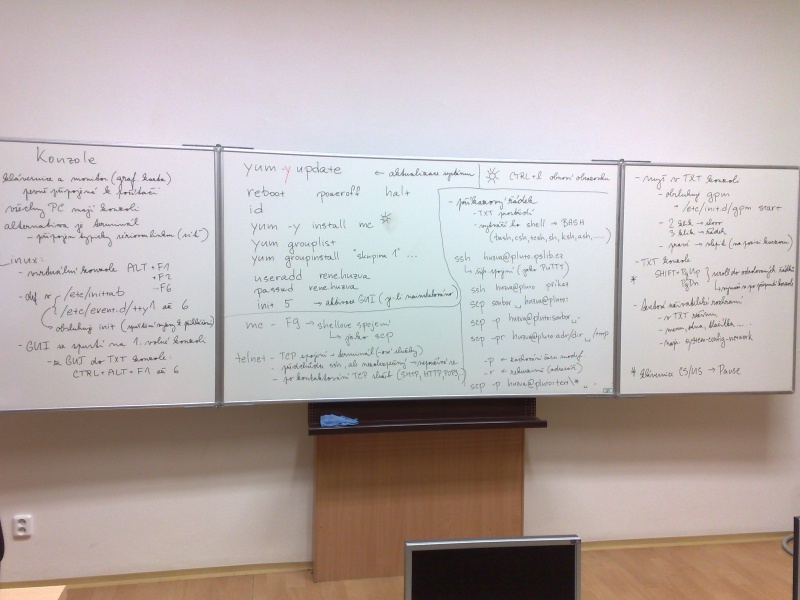 Konzole
klávesnice a monitor (graf. karta)
pevně připojená k počítači
všechny PC mají konzoli
alternativa je terminál
- připojen typicky sériovou linkou (síť)
Linux:
- virtuální konzole ALT + F1
+ F2
- F6
- def v /etc/inittab
/etc/event.d/tty1 až 6
obsluhuje init
- GUI se spustí na 1. volné konzoli
- z GUI do TXT konzole:
CTRL + ALT + F1 až 6
yum -y update ← aktualizace systému
reboot poweroff halt
id
yum -y install mc
yum grouplist
yum groupinstall "skupina 1" ...
useradd rene.huzva
passwd rene.huzva
init 5 → aktivace GUI (je-li nainstalováno)
mc - F9 → shellové spojení
↳ jako scp
telnet - TCP spojení - terminál
- předchůdce ssh, ale nezabezpečený →
- po kontaktování TCP služeb (SMTP, HTTP, POP3..)
CTRL+L obnoví obrazovku
- příkazový řádek
- TXT prostředí
- vytváří ho shell → BASH
(bash, csh, tcsh, sh, ksh, ash, ...)
ssh huzva@pluto.pslib.cz
↳ šifr. spojení (jako PuTTY)
ssh huzva@pluto příkaz
scp soubor huzva@pluto:
scp -p huzva@pluto:soubor .
scp -pr huzva@pluto:adr/dir /tmp
-p ← zachování času modif
-r ← rekurzivně (adresář)
scp -p huzva@pluto:text\* .
- myš v TXT konzoli
- obsluhuje gpm
* /etc/init.d/gpm start
- 2 klik → slovo
3 klik → řádek
- pravé → vlepit (na pozici kurzoru)
- TXT konzole
* SHIFT + PgUp
PgDn
- textové uživatelské rozhraní
- v TXT režimu
- menu, okna, tlačítka ...
- např. system-config-network
* klávesnice CS/US → Pause